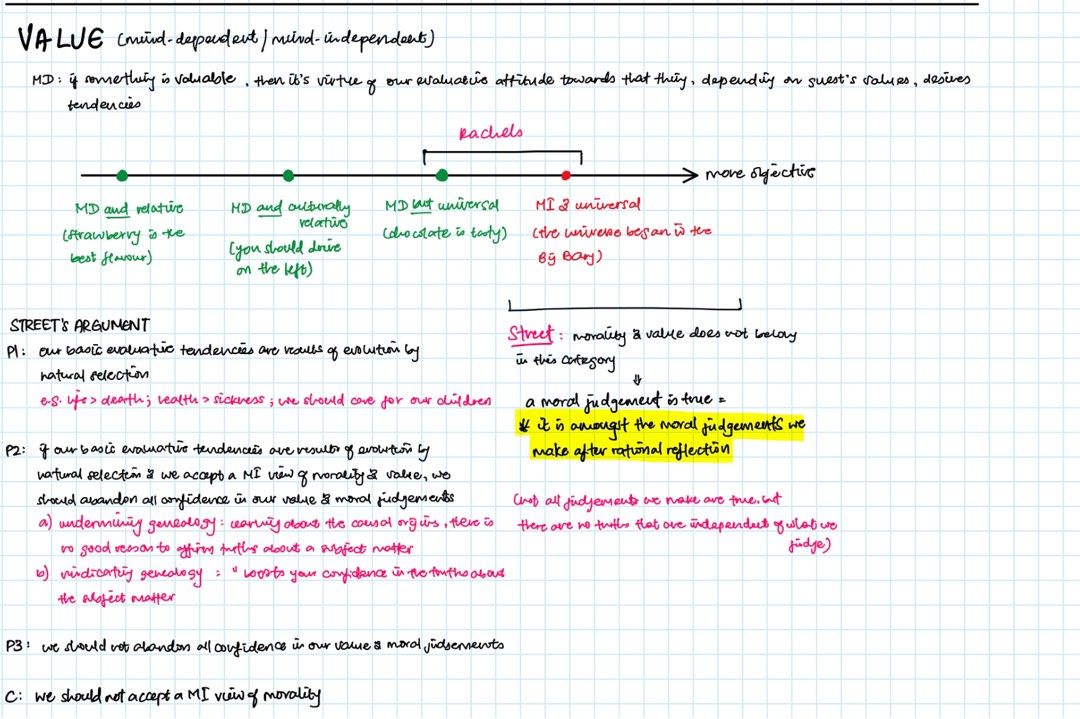 VALUE (mind-dependent / mind-independent)
MD: if something is valuable, then it's virtue of our evaluative attitude towards that thing, depending on guest's values, desires
tendencies
Rachels
more objective
MD and relative
(strawberry is the
best flavour)
MD and culturally
relative
(you should drive
on the left)
MD but universal
(chocolate is tasty)
MI & universal
(the universe began in the
Big Bang)
STREET'S ARGUMENT
P1: our basic evaluative tendencies are results of evolution by
natural selection
e.g. life > death; health > sickness; we should care for our children
P2: if our basic evaluative tendencies are results of evolution by
natural selection & we accept a MI view of morality & value, we
should abandon all confidence in our value & moral judgements
a) undermining genealogy: learning about the causal origins, there is
no good reason to affirm truths about a subject matter
b) vindicating genealogy: " boosts your confidence in the truths about
the subject matter
P3: we should not abandon all confidence in our value & moral judgements
C: we should not accept a MI view of morality
Street: morality & value does not belong
in this category
⇓
a moral judgement is true =
it is amongst the moral judgements we
make after rational reflection
(not all judgements we make are true, but
there are no truths that are independent of what we
judge)